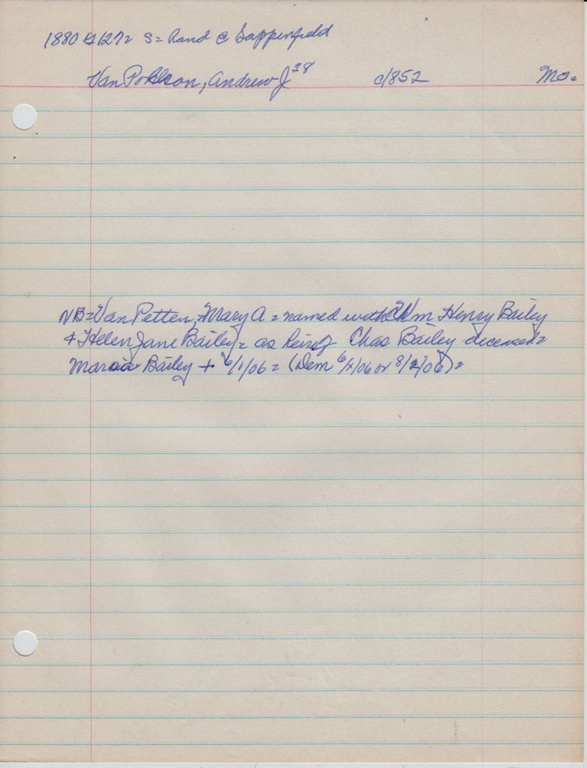 1880 S= Rand @ Sappenfield
Van Pohlson, Andrew J 28 c1852 Mo.
VB= Van Petten, Mary A = named with Wm Henry Bailey
+ Helen Jane Bailey = as heirs of Chas Bailey deceased =
Maria Bailey + 6/1/06 = (Dem 6/1/06 or 8/2/06) =